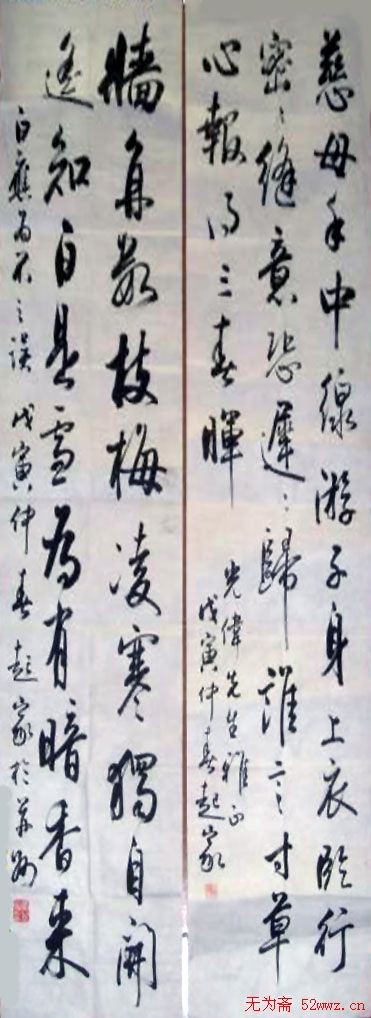 慈母手中線游子身上衣臨行
密〻縫意恐遲〻歸誰言寸草
心報得三春暉
光偉先生雅正
戊寅仲春起家
牆角數枝梅凌寒獨自開
遙知白是雪為有暗香來
白應為不之誤 戊寅仲春起家於
无为斋 52wwz.cn